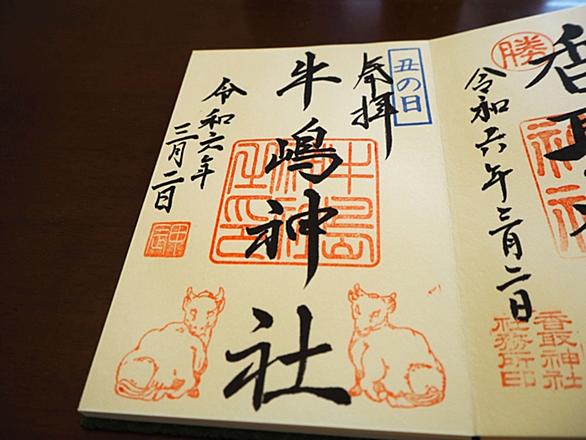 勝
香取神
令和六年三月二日
香取神社
社務所印
丑の日
奉拝
牛嶋神社
牛島
神社
之印
令和六年
三月二日